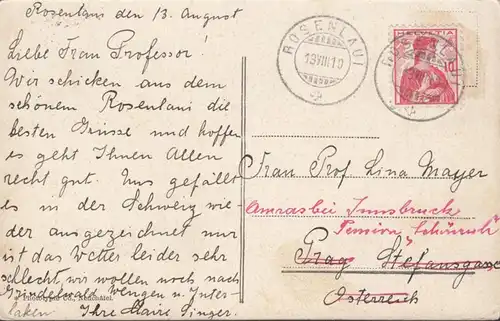 Rosenlaui den 13. August
Liebe Frau Professor!
Wir schicken aus dem
schönem Rosenlaui die
besten Grüsse und hoffen
es geht Ihnen Allen
recht gut. Uns gefällt
es in der Schweiz wie-
der ausgezeichnet nur
ist das Wetter leider sehr
schlecht, wir wollen noch nach
Grindelwald Wengen u. Inter-
laken. Ihre
Phototypie Co., Neuchâtel.
ROSENLAUI
13.VIII.10
HELVETIA
10
ROSENLAUI
Frau Prof. Lina Mayer
Amras bei Innsbruck
Pension
Prag Stefansgasse
Österreich